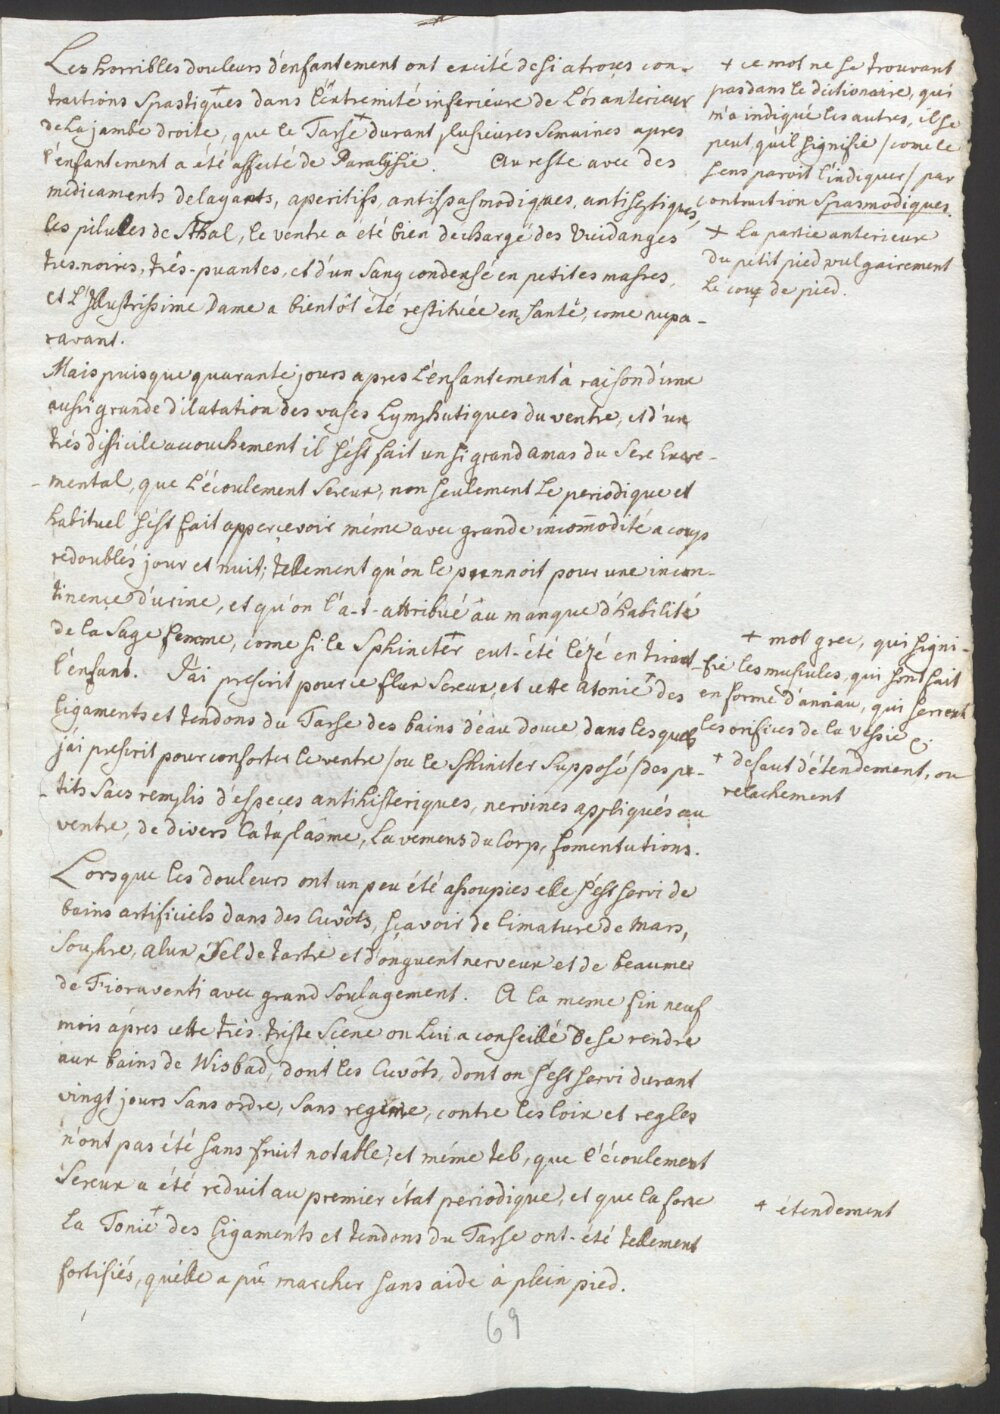 Les horribles douleurs d'enfantement ont excité de si atroces con-
tractions spastiques + dans l'extremité inferieure de l'os anterieur
de la jambe droite, que le Tarse + durant plusieures semaines apres
l'enfantement a été affecté de Paralysie. Au reste avec des
medicaments delayants, aperitifs, antispasmodiques, antiseptiques,
les pilules de Sthal, le ventre a été bien dechargé des Vuidanges
tres-noires, trés-puantes, et d'un sang condensé en petites masses,
et L'Illustrissime Dame a bientôt été restituée en santé, come aupa-
ravant.
Mais puisque quarante jours apres l'enfantement à raison d'une
aussi grande dilatation des vases Lymphatiques du ventre, et d'un
trés difficile accouchement il s'ést fait un si grand amas du Sere Excre-
mental, que l'écoulement Sereux, non seulement le periodique et
habituel s'ést fait appercevoir méme avec grande incom̄odité a coups
redoublés jour et nuit, tellement qu'on le prennoit pour une incon-
tinençe d'urine, et qu'on l'a-t-attribué âu manque d'habilité
de la Sage femme, come si le Sphincter + eut-été lézé en tirant
l'enfant. J'ai prescrit pour ce flux Sereux, et cette Atonie + des
ligaments et tendons du Tarse des bains d'eau douce, dans lesquels
j'ai prescrit pour conforter le ventre /ou le Sphincter Supposé/ des pe-
tits Sacs remplis d'especes antihisteriques, nervines appliqués au
ventre, de divers Cataplâsme, Lavemens du Corp, fomentations.
Lorsque les douleurs ont un peu été assoupies elle s'ést servi de
bains artificiels dans des Cuvôts, sçavoir de limature de Mars,
Souphre, alun, Sel de tartre et d'onguent nerveux et de beaume
de Fioraventi avec grand soulagement. A la meme fin neuf
mois apres cette trés-triste Scene on Lui a conseillé de se rendre
aux bains de Wisbad, dont les Cuvôts, dont on s'ést servi durant
vingt jours sans ordre, sans regime, contre les loix et regles
n'ont pas été sans fruit notable, et méme tel, que l'écoulement
Sereux a été reduit au premier état periodique, et que la force
la Tonie + des ligaments et tendons du Tarse ont-été tellement
fortifiés, qu'elle a pû marcher sans aide à plein pied.
+ ce mot ne se trouvant
pas dans le dictionaire, qui
m'a indiqué les autres, il se
peut, qu'il signifie / come le
sens paroit l'indiquer / par
contraction Spasmodiques.
+ la partie anterieure
du petit pied vulgairement
le coup de pied.
+ mot grec, qui signi-
fie les muscules, qui sont fait
en forme d'anneau, qui serrent
les orifices de la vessie &.
+ defaut d'étendement, ou
relachement
+ étendement
69